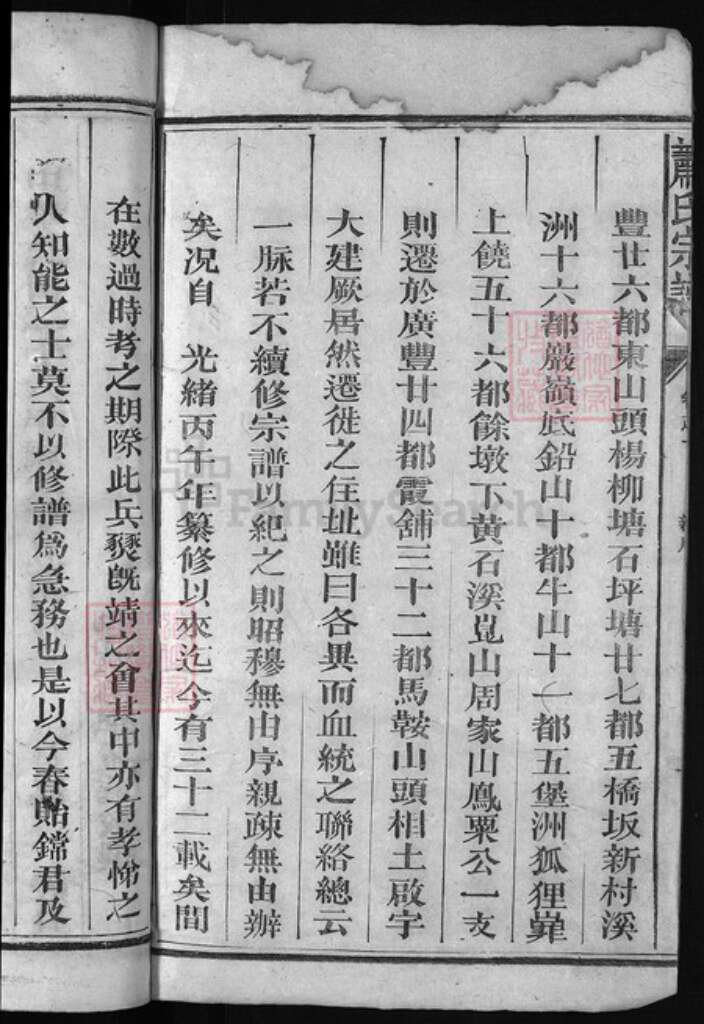 蕭氏宗譜
豐廿六都東山頭楊柳塘石坪塘廿七都五橋坂新村溪
洲十六都嚴嶺底鉛山十都牛山十一都五堡洲狐狸嶭
上饒五十六都餘墩下黃石溪嵬山周家山鳳粟公一支
則遷於廣豐廿四都霞舖三十二都馬鞍山頭相土啟宇
大建厥居然遷徙之住址雖曰各異而血統之聯絡總云
一脉若不續修宗譜以紀之則昭穆無由序親疎無由辦
矣况自 光緒丙午年纂修以來迄今有三十二載矣間
在數過時考之期際此兵燹旣靖之會其中亦有孝悌之
人知能之士莫不以修譜爲急務也是以今春貽鐺君及
FamilySearch